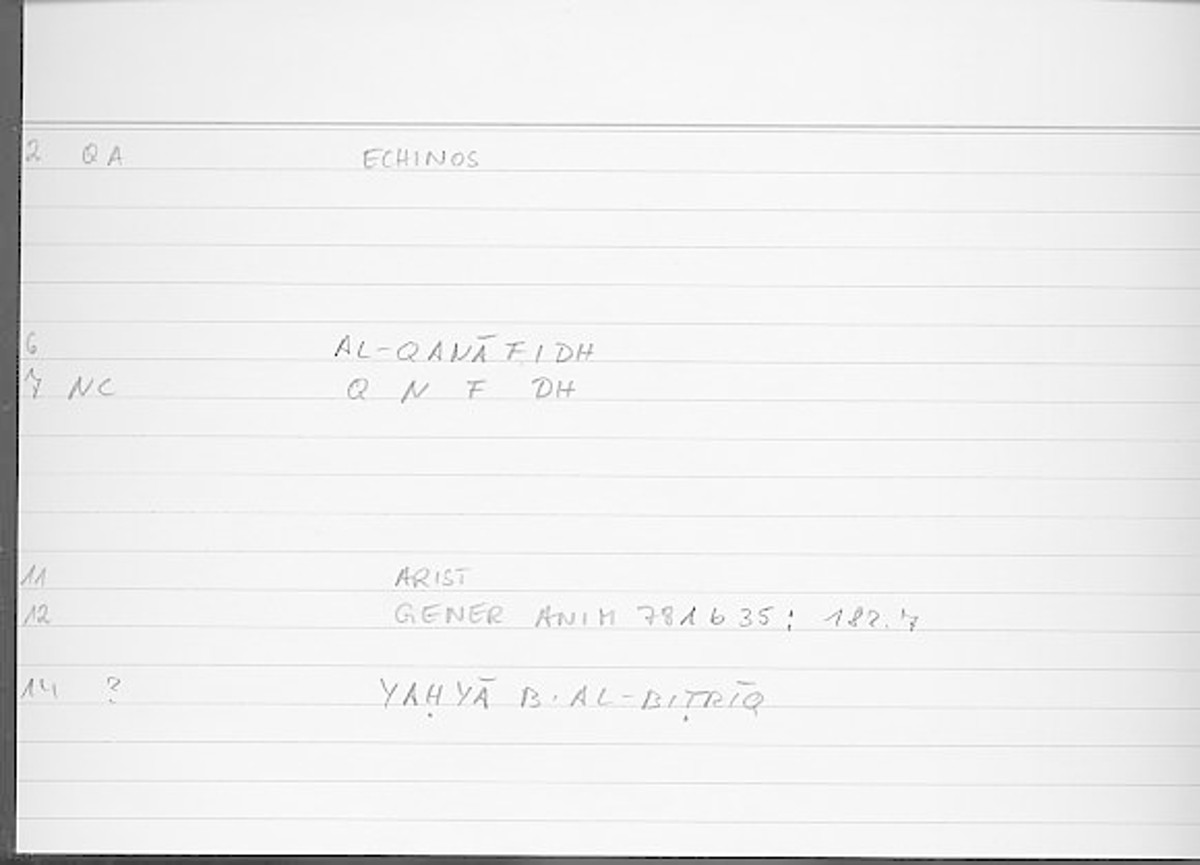 2 QA ECHINOS
6 AL-QANĀFIDH
7 NC Q N F DH
11 ARIST
12 GENER ANIM 781 b 35; 182.7
14 ? YAḤYĀ B. AL-BIṬRĪQ